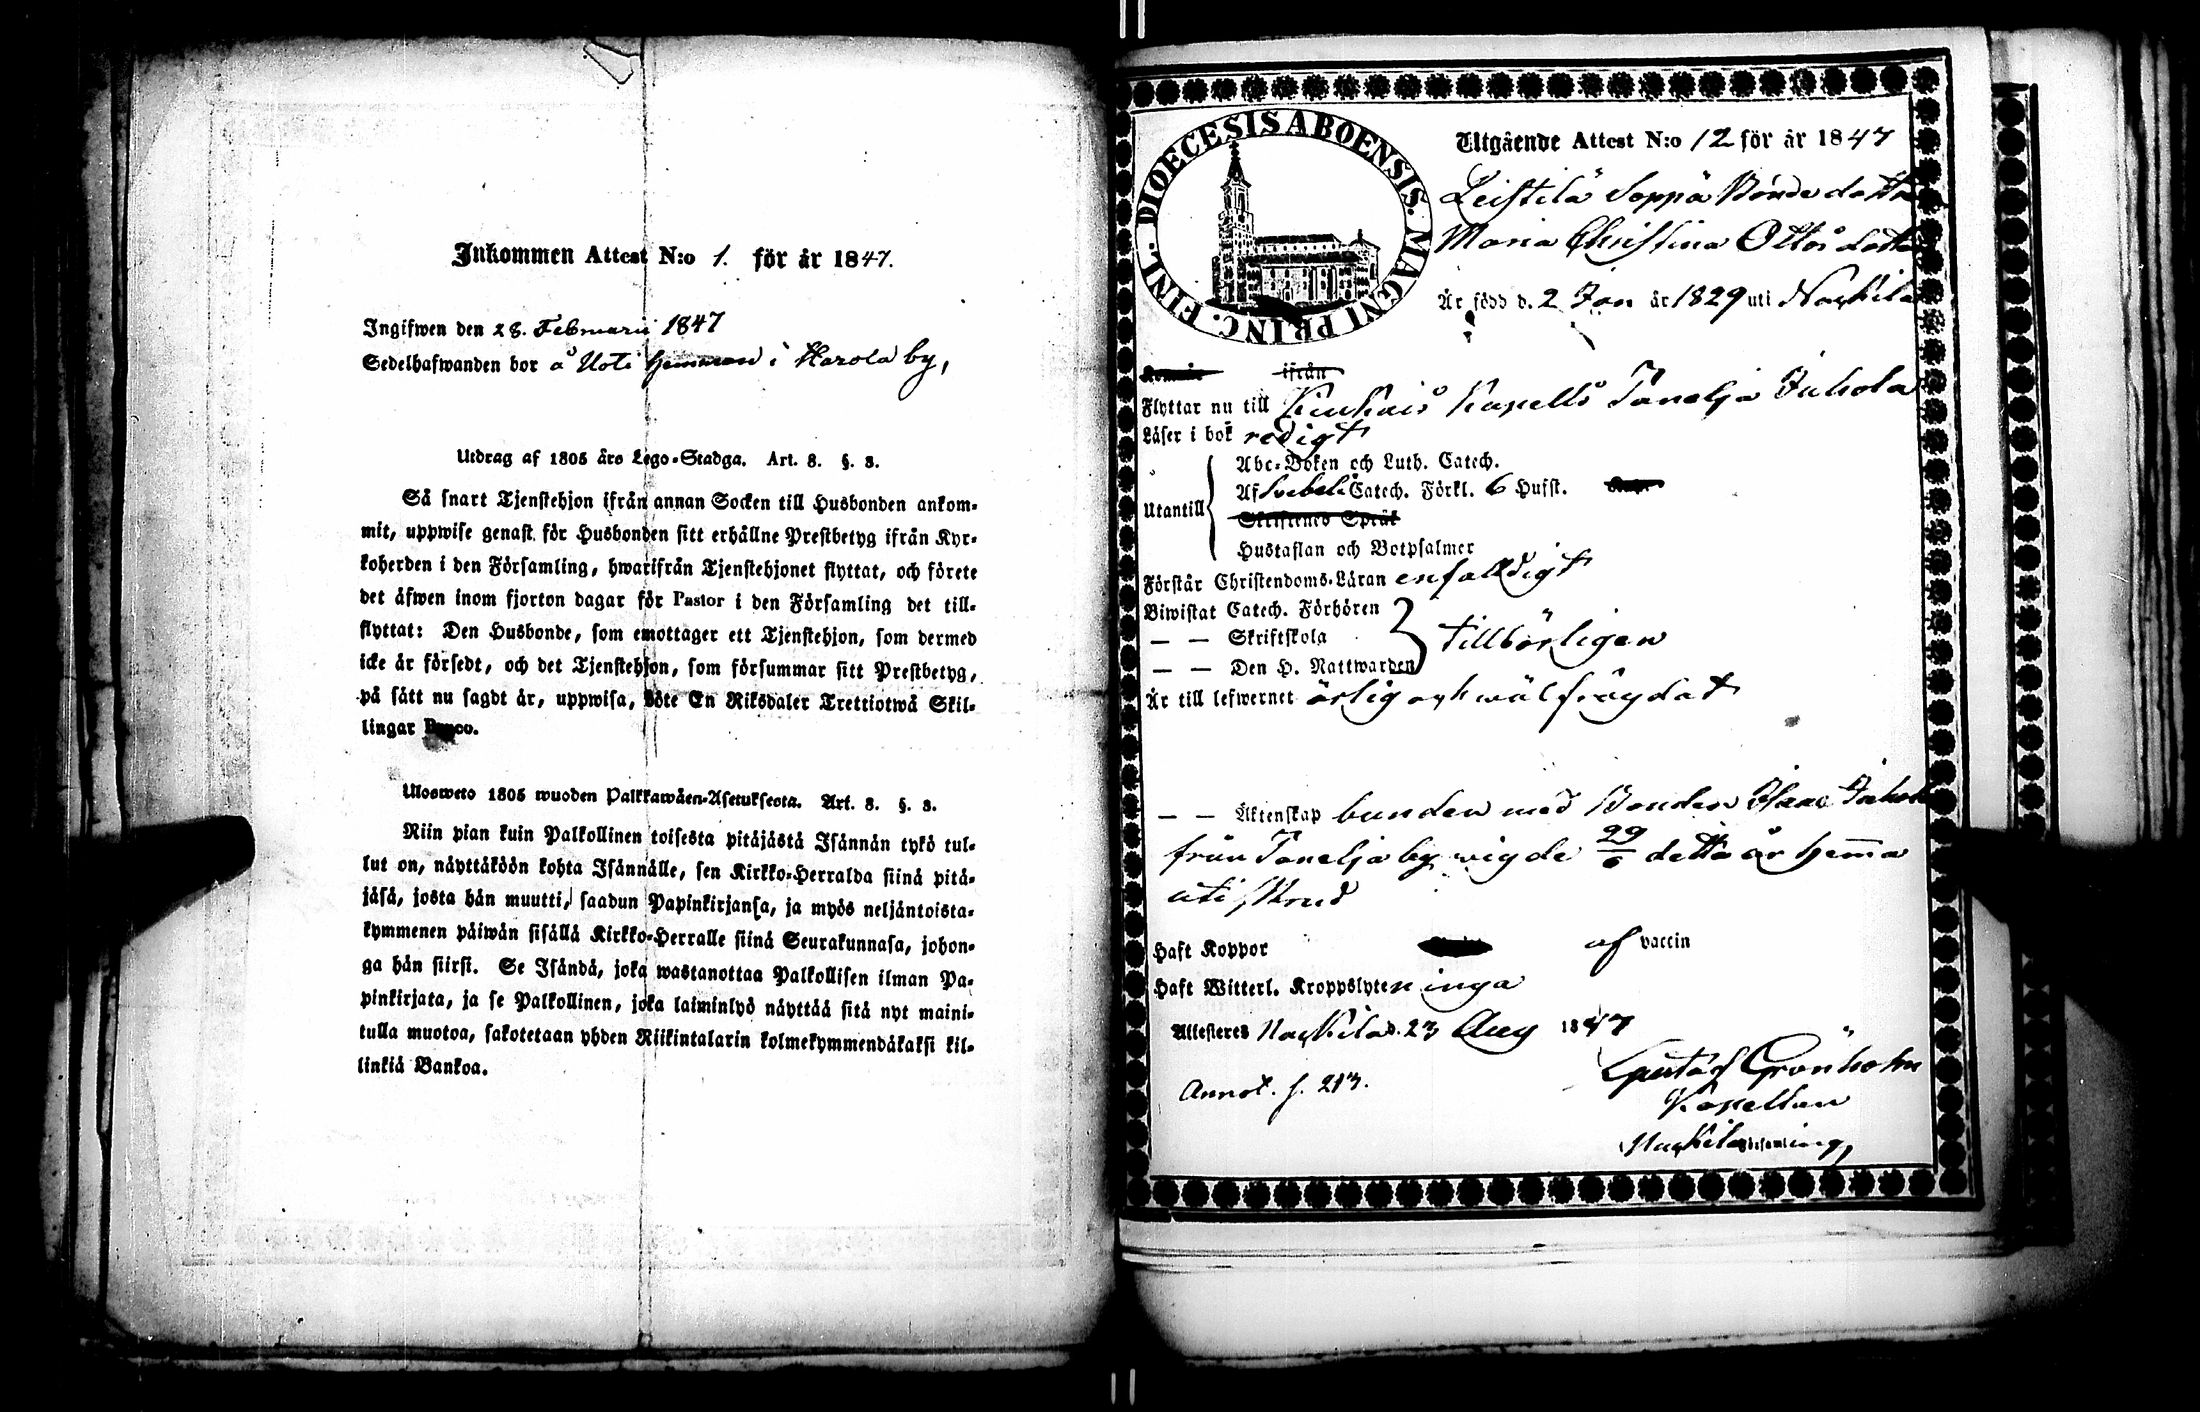 Inkommen Attest N:o 1. för år 1847.
Ingifwen den 28. Februarii 1847
Sedelhafwanden bor å Uoti hemman i Harola by,
Utdrag af 1805 års Lego-Stadga. Art. 8. §. 3.
Så snart Tjenstehjon ifrån annan Socken till Husbonden ankom-
mit, uppwise genast för Husbonden sitt erhållne Prestbetyg ifrån Kyr-
koherden i den Församling, hwarifrån Tjenstehjonet flyttat, och förete
det äfwen inom fjorton dagar för Pastor i den Församling det till-
flyttat: Den Husbonde, som emottager ett Tjenstehjon, som dermed
icke är försedt, och det Tjenstehjon, som försummar sitt Prestbetyg,
på sätt nu sagdt är, uppwisa, böte En Riksdaler Trettiotwå Skil-
lingar Banco.
Ulosweto 1805 wuoden Palkkawäen-Asetuksesta. Art. 8. §. 3.
Niin pian kuin Palkollinen toisesta pitäjästä Isännän tykö tul-
lut on, näyttäköön kohta Isännälle, sen Kirkko-Herralda siinä pitä-
jäsä, josta hän muutti, saadun Papinkirjansa, ja myös neljäntoista-
kymmenen päiwän sisällä Kirkko-Herralle siinä Seurakunnasa, johon-
ga hän siirsi. Se Isändä, joka wastanottaa Palkollisen ilman Pa-
pinkirjata, ja se Palkollinen, joka laiminlyö näyttää sitä nyt maini-
tulla muotoa, sakotetaan yhden Riikintalarin kolmekymmendäkaksi kil-
linkiä Bankoa.
DIOECESIS ABOENSIS. MAGNI PRINC. FINL.
Utgående Attest N:o 12 för år 1847
Leistilä Seppä Bondedotter
Maria Christina Ottosdotter
Är född d. 2 Jan år 1829 uti Nackila
ifrån
Flyttar nu till Kiukais Kapells Panelja Juhola
Läser i bok redigt
Abc-Boken och Luth. Catech.
Utantill Af Svebeli Catech. Förkl. 6 Hufst.
Skriftenes Språk
Hustaflan och Botpsalmer
Förstår Christendoms-Läran enfalldigt
Biwistat Catech. Förhören
— — Skriftskola tillbörligen
— — Den H. Nattwarden
Är till lefwernet ärlig och wälfrägdat
— — Äktenskap bunden med Bonden Isaac Juhola
från Panelja by wigde 29/6 detta år hemma
uti
Haft Koppor af vaccin
Haft Witterl. Kroppslyten inga
Attesteres Nackila d. 23 Aug 1847
Gustaf Grönholm
Annot. s. 213.
Kapellan
Nackila församling,